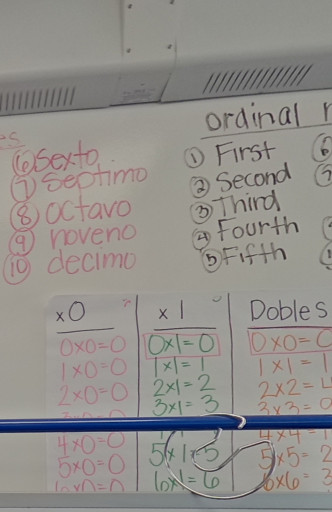 ordinal
⑥ sexto
⑦ septimo
⑧ octavo
⑨ noveno
⑩ decimo
① First
② Second
③ Third
④ Fourth
⑤ Fifth
x0
0x0=0
1x0=0
2x0=0
4x0=0
5x0=0
6x0=0
x1
0x1=0
1x1=1
2x1=2
3x1=3
5x1=5
6x1=6
Dobles
0x0=0
1x1=1
2x2=
3x3=
4x4=
5x5=2
6x6=3